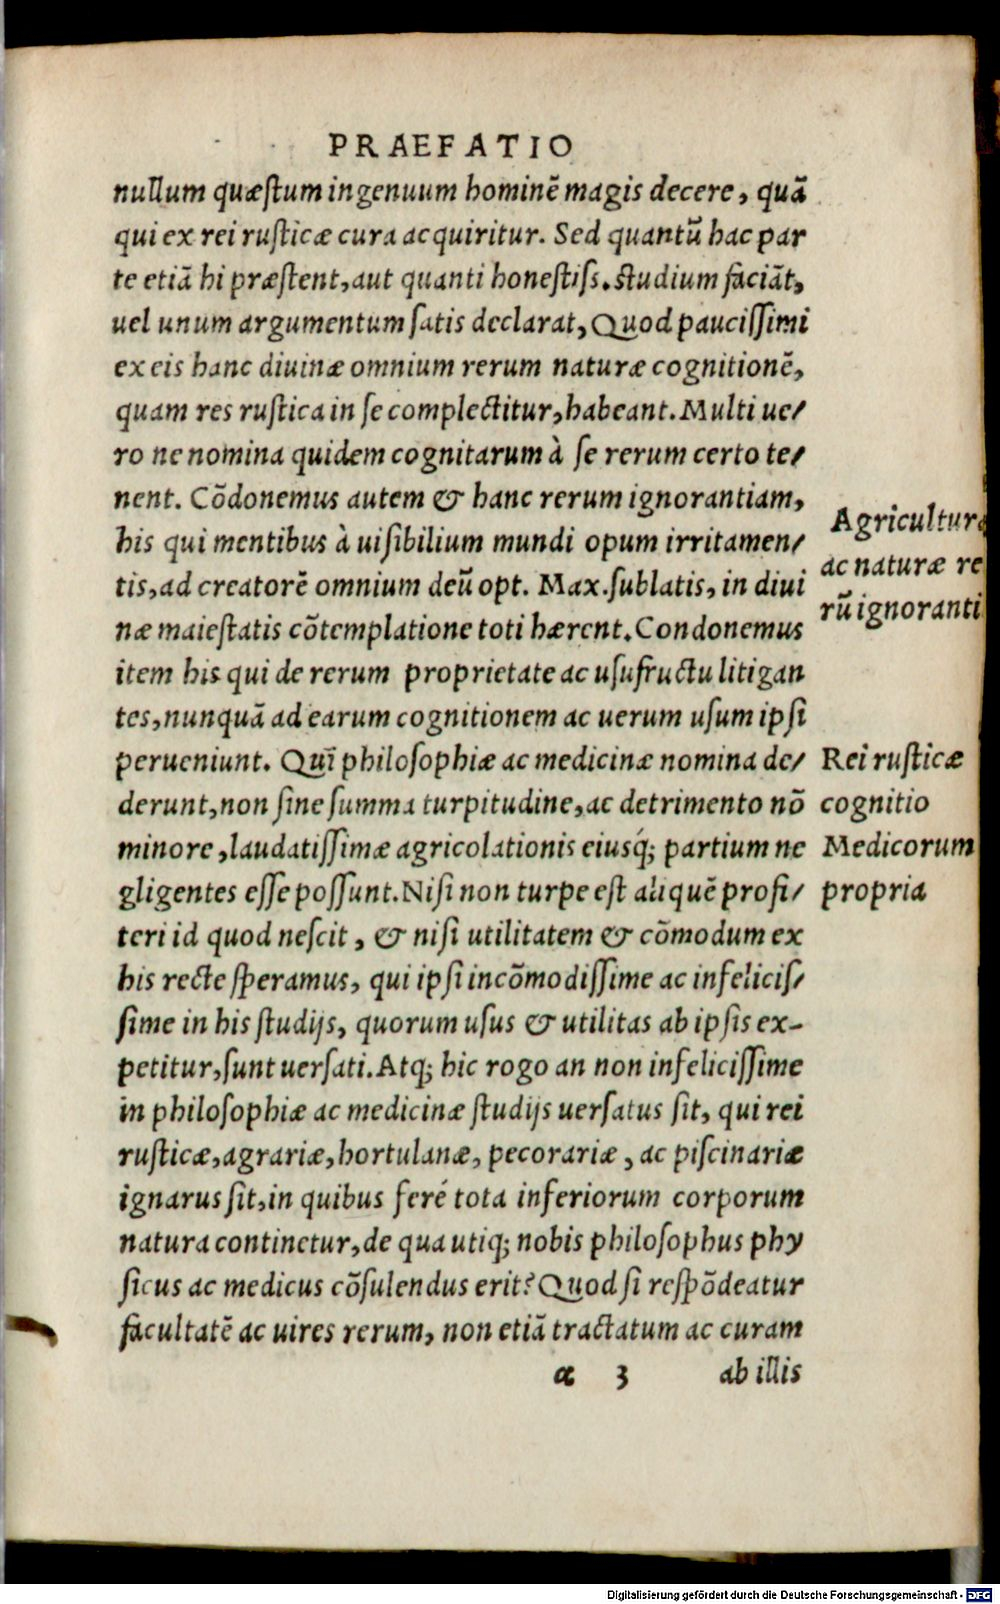 PRAEFATIO
nullum quæſtum ingenuum hominẽ magis decere, quã
qui ex rei ruſticæ cura acquiritur. Sed quantũ hac par
te etiã hi præſtent, aut quanti honeſtiſs. ſtudium faciãt,
uel unum argumentum ſatis declarat, Quod pauciſſimi
ex eis hanc diuinæ omnium rerum naturæ cognitionẽ,
quam res ruſtica in ſe complectitur, habeant. Multi ue/
ro ne nomina quidem cognitarum à ſe rerum certo te/
nent. Cõdonemus autem & hanc rerum ignorantiam,
his qui mentibus à uiſibilium mundi opum irritamen/
tis, ad creatorẽ omnium deũ opt. Max. ſublatis, in diui
næ maieſtatis cõtemplatione toti hærent. Condonemus
item his qui de rerum proprietate ac uſufructu litigan
tes, nunquã ad earum cognitionem ac uerum uſum ipſi
perueniunt. Quĩ philoſophiæ ac medicinæ nomina de/
derunt, non ſine ſumma turpitudine, ac detrimento nõ
minore, laudatiſſimæ agricolationis eiusq́; partium ne
gligentes eſſe poſſunt. Niſi non turpe eſt aliquẽ profi/
teri id quod neſcit, & niſi utilitatem & cõmodum ex
his recte ſperamus, qui ipſi incõmodiſſime ac infeliciſ/
ſime in his ſtudijs, quorum uſus & utilitas ab ipſis ex-
petitur, ſunt uerſati. Atq; hic rogo an non infeliciſſime
in philoſophiæ ac medicinæ ſtudijs uerſatus ſit, qui rei
ruſticæ, agrariæ, hortulanæ, pecorariæ, ac piſcinariæ
ignarus ſit, in quibus feré tota inferiorum corporum
natura continetur, de qua utiq; nobis philoſophus phy
ſicus ac medicus cõſulendus erit? Quod ſi reſpõdeatur
facultatẽ ac uires rerum, non etiã tractatum ac curam
α 3 ab illis
Agricultura
ac naturæ re
rũ ignoranti
Rei ruſticæ
cognitio
Medicorum
propria
Digitalisierung gefördert durch die Deutsche Forschungsgemeinschaft - DFG